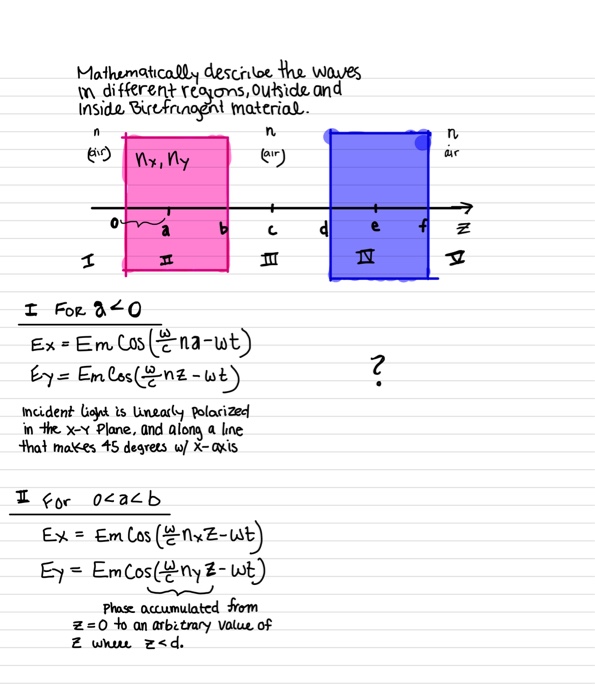 Mathematically describe the waves
in different regions, outside and
Inside Birefringent material.
n n n
(air) nx, ny (air) air
0 a b c d e f z
I II III IV V
I FOR a<0
Ex = Em Cos(ω/c na-ωt)
Ey= Em Cos(ω/c nz-ωt)
?
Incident light is linearly polarized
in the x-y Plane, and along a line
that makes 45 degrees w/ x-axis
II For 0<a<b
Ex = Em Cos(ω/c nxz-ωt)
Ey = Em Cos(ω/c nyz-ωt)
Phase accumulated from
z=0 to an arbitrary value of
z where z<d.